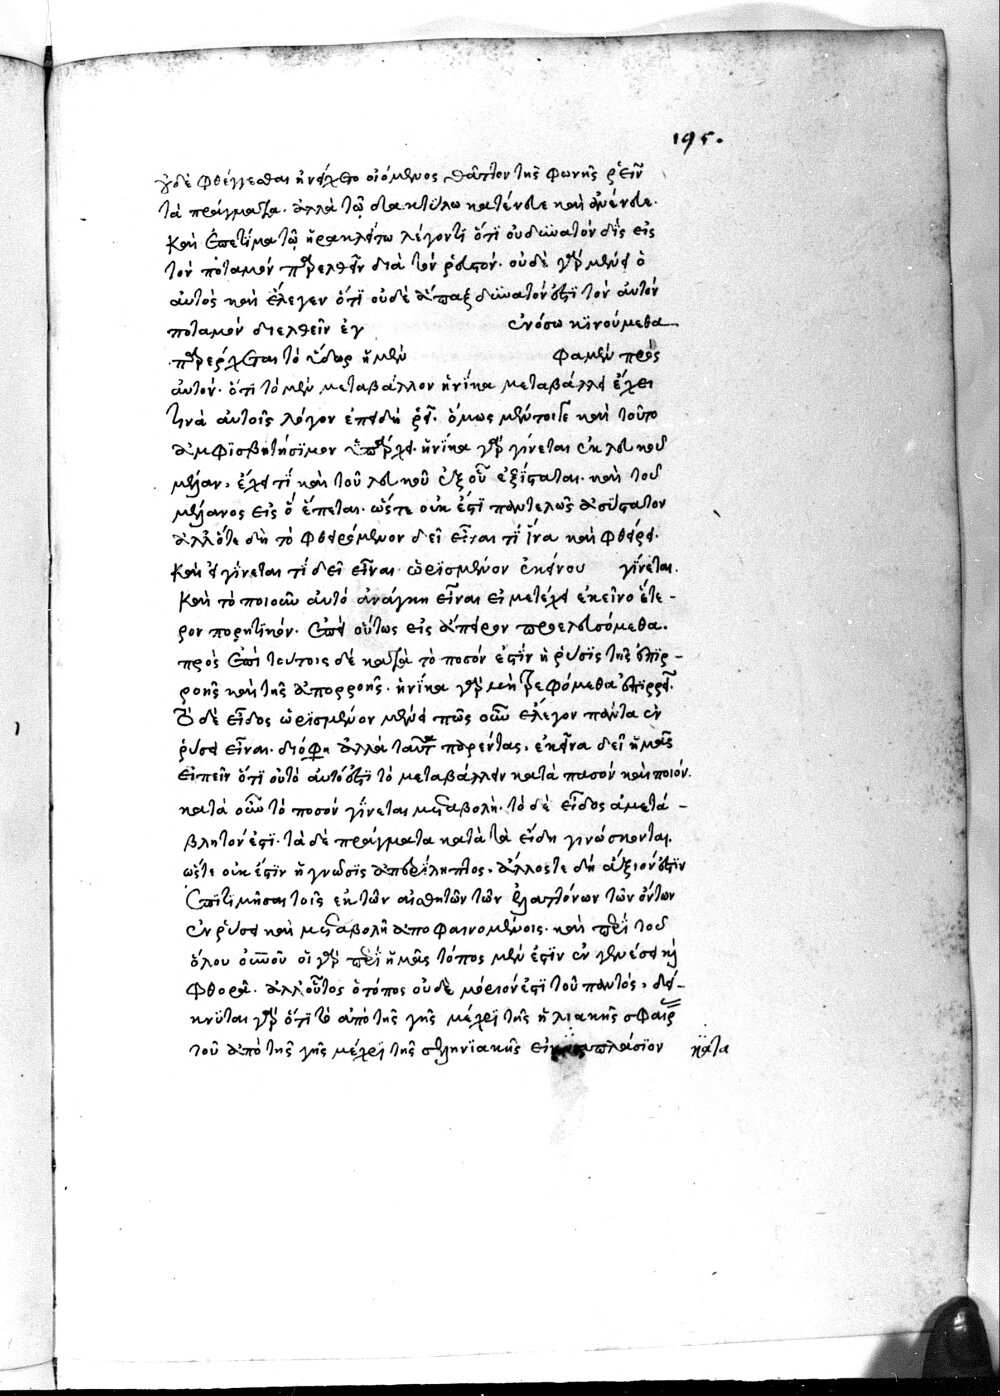 195.
οὐδὲ φθέγγεσθαι ἠνείχετο οἰόμενος θᾶττον τῆς φωνῆς ῥεῖν
τὰ πράγματα. ἀλλὰ τῷ δακτύλω κατένευε καὶ ἀνένευε.
καὶ ἐπετίμα τῷ ἡρακλείτω λέγοντι ὅτι οὐ δυνατὸν δὶς εἰς
τὸν ποταμὸν παρελθεῖν διὰ τὸν ῥευστόν. οὐδὲ γὰρ μένει ὁ
αὐτὸς καὶ ἔλεγεν ὅτι οὐδὲ ἅπαξ δυνατόν ἐστι τὸν αὐτὸν
ποταμὸν διελθεῖν ἐν ἐν ὅσω κινούμεθα
παρέρχεται τὸ ὕδωρ ἡμεῖν φαμὲν πρὸς
αὐτόν. ὅτι τὸ μὲν μεταβάλλον ἡνίκα μεταβάλλει ἔχει
τινὰ αὐτοῖς λόγον ἐπειδὴ ῥεῖ. ὅμως μέντοιγε καὶ τοῦτο
ἀμφισβητήσιμον ὑπάρχει. ἡνίκα γὰρ γίνεται ἐκ λευκοῦ
μέλαν, ἔχει τί καὶ τοῦ λευκοῦ ἐξ οὗ ἐξίσταται. καὶ τοῦ
μέλανος εἰς ὃ ἕπεται. ὥστε οὐκ ἔστι παντελῶς ἀσύστατον
ἄλλοτε δὴ τὸ φθειρόμενον δεῖ εἶναι τί ἵνα καὶ φθείρει.
καὶ εἰ γίνεται τί δεῖ εἶναι ὡρισμένον ἐκείνου γίνεται.
καὶ τὸ ποιοῦν αὐτὸ ἀνάγκη εἶναι εἰ μετέχει ἐκεῖνο ἕτε-
ρον ποιητικόν. ἐπεὶ οὕτως εἰς ἄπειρον προελευσόμεθα.
πρὸς ἐπὶ τούτοις δὲ κατὰ τὸ ποσόν ἐστιν ἡ ῥύσις τῆς ἐπιρ-
ροῆς καὶ τῆς ἀπορροῆς. ἡνίκα γὰρ μὴ τρεφόμεθα ἐπιρρεῖ.
τὸ δὲ εἶδος ὡρισμένον μένει πῶς οὖν ἔλεγον πάντα ἐν
ῥύσει εἶναι. διό φη ἀλλὰ ταῦτα παρέντας, ἐκεῖνα δεῖ ἡμᾶς
εἰπεῖν ὅτι οὐ τὸ αὐτό ἐστι τὸ μεταβάλλειν κατὰ ποσὸν καὶ ποιόν.
κατὰ οὖν τὸ ποσὸν γίνεται μεταβολή. τὸ δὲ εἶδος ἀμετά-
βλητόν ἐστι. τὰ δὲ πράγματα κατὰ τὰ εἴδη γινώσκονται.
ὥστε οὐκ ἔστιν ἡ γνῶσις ἀπερίληπτος. ἄλλοστε δὴ ἄξιόν ἐστιν
ἐπιτιμῆσαι τοῖς ἐκ τῶν αἰσθητῶν τῶν ἐλαττόνων τῶν ὄντων
ἐν ῥύσει καὶ μεταβολῆ ἀποφαινομένοις. καὶ περὶ τοῦ
ὅλου οὐρανοῦ ὁ γὰρ περὶ ἡμᾶς τόπος μέν ἐστιν ἐν γενέσει κὴ
φθορᾶ. ἀλλ' οὗτος ὁ τόπος οὐδὲ μόριόν ἐστι τοῦ παντός, δεί-
κνυται γὰρ ὅτι τὸ ἀπὸ τῆς γῆς μέχρι τῆς ἡλιακῆς σφαίρ
τοῦ ἀπὸ τῆς γῆς μέχρι τῆς σεληνιακῆς πλάσιον κατα